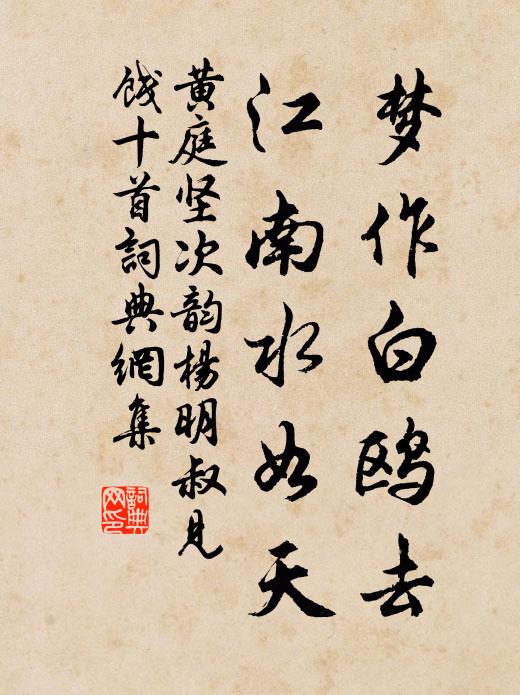 梦作白鸥去
江南水如天
黄庭坚次韵杨明叔见
饯十首词典網集
詞典网印